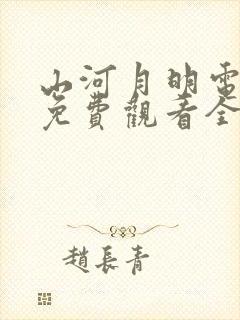 山河月明電
免費觀看全
趙長青